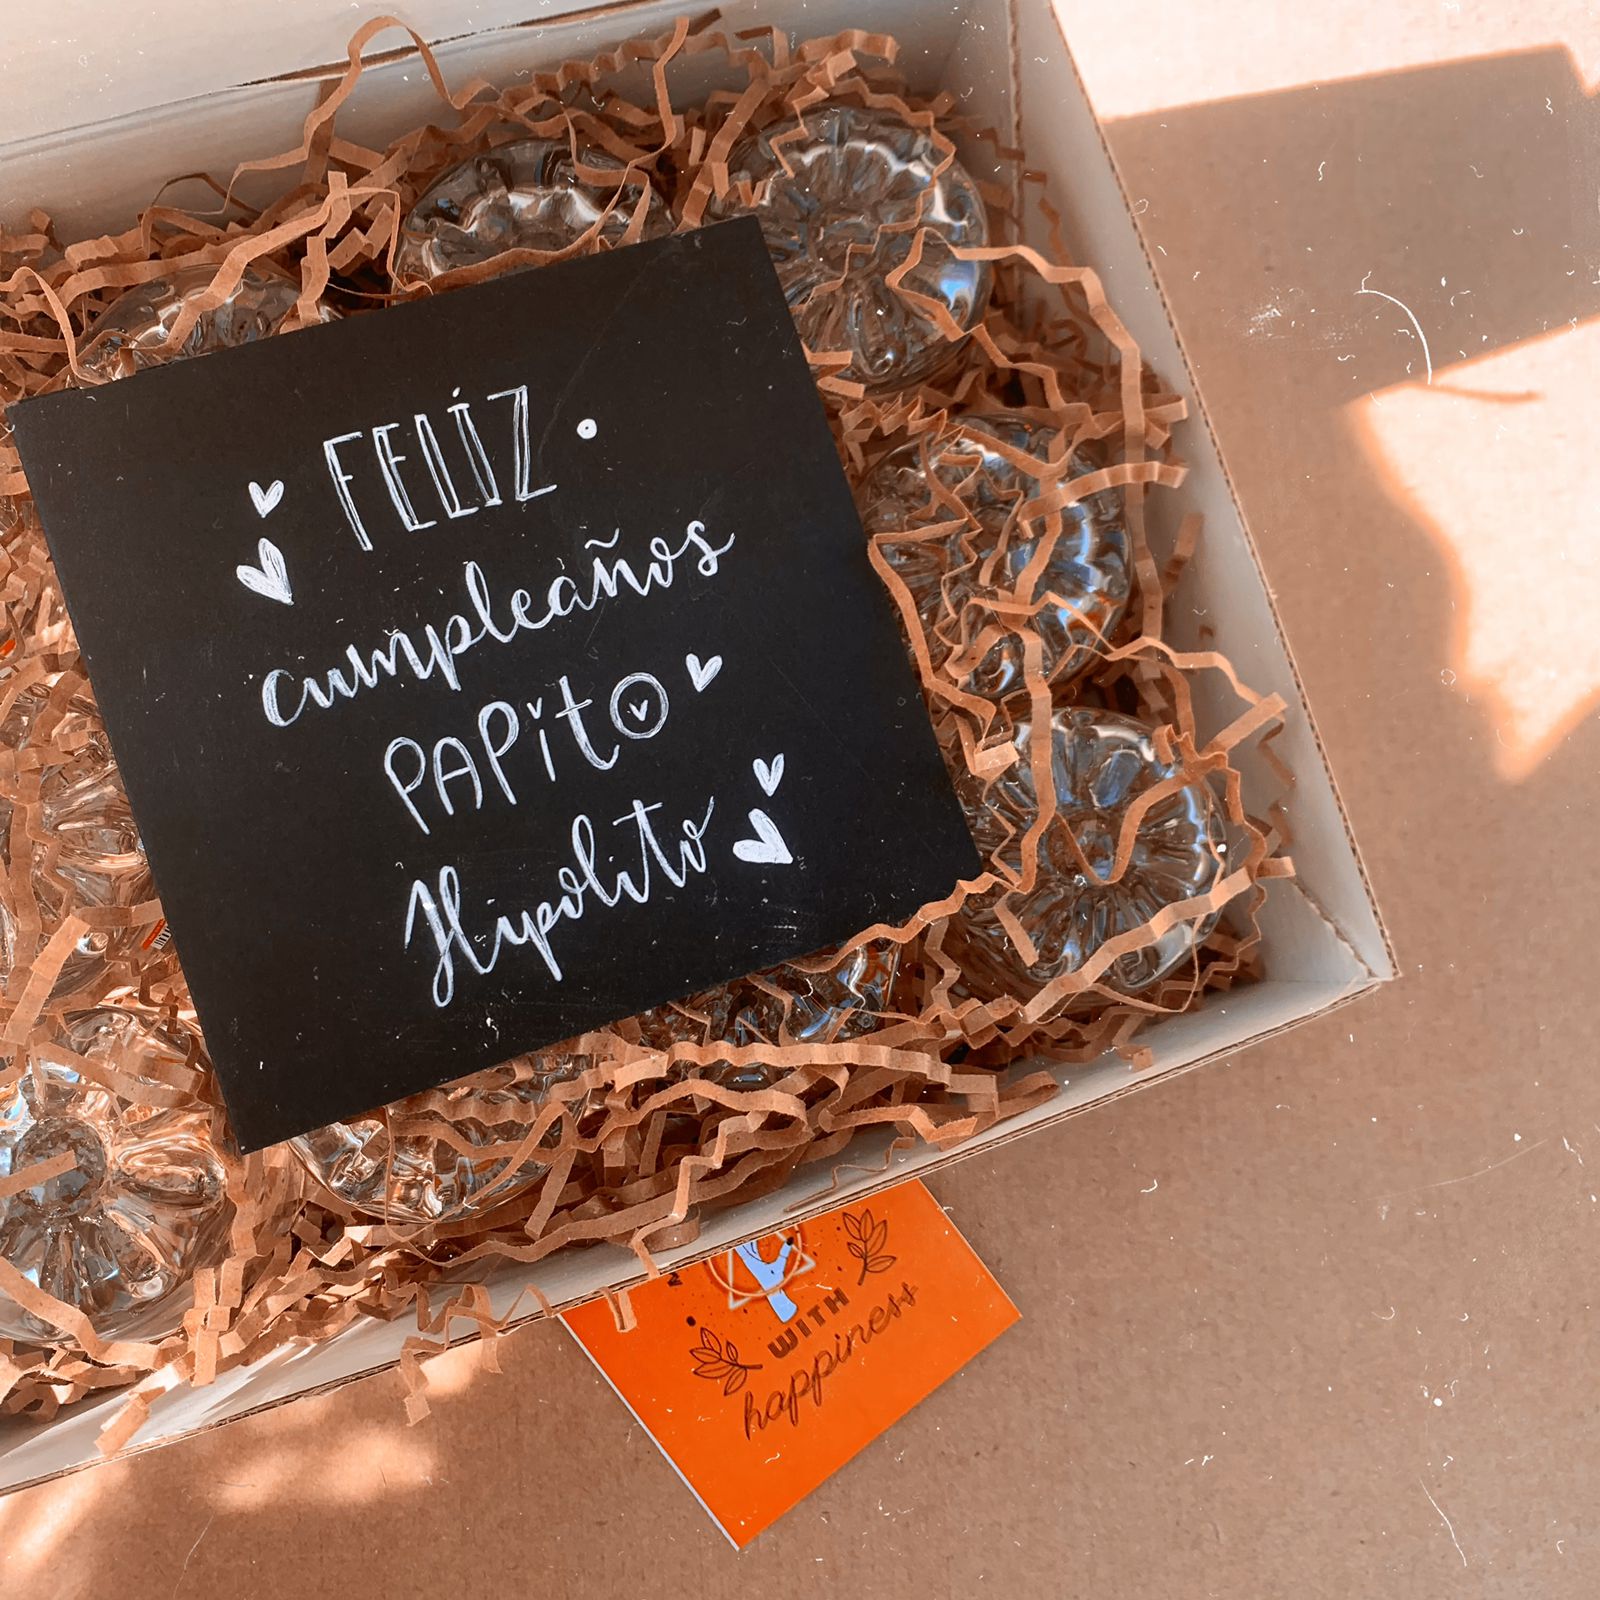 FELIZ
cumpleaños
PAPito
Hipolito
WITH
happiness